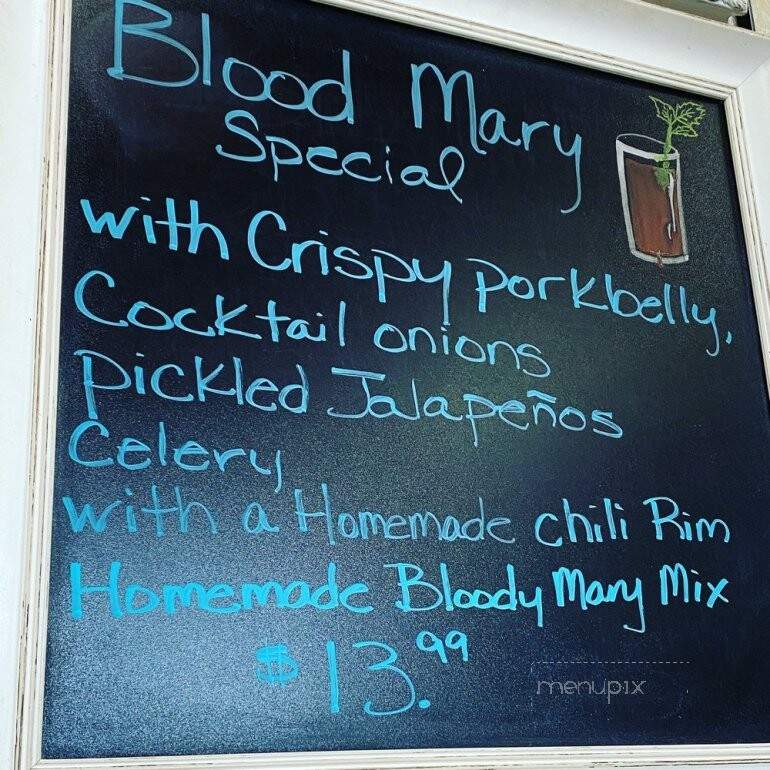 Blood Mary
Special
with Crispy porkbelly,
Cocktail onions
pickled Jalapeños
Celery
with a Homemade chili Rim
Homemade Bloody Mary Mix
$13.99
menupix